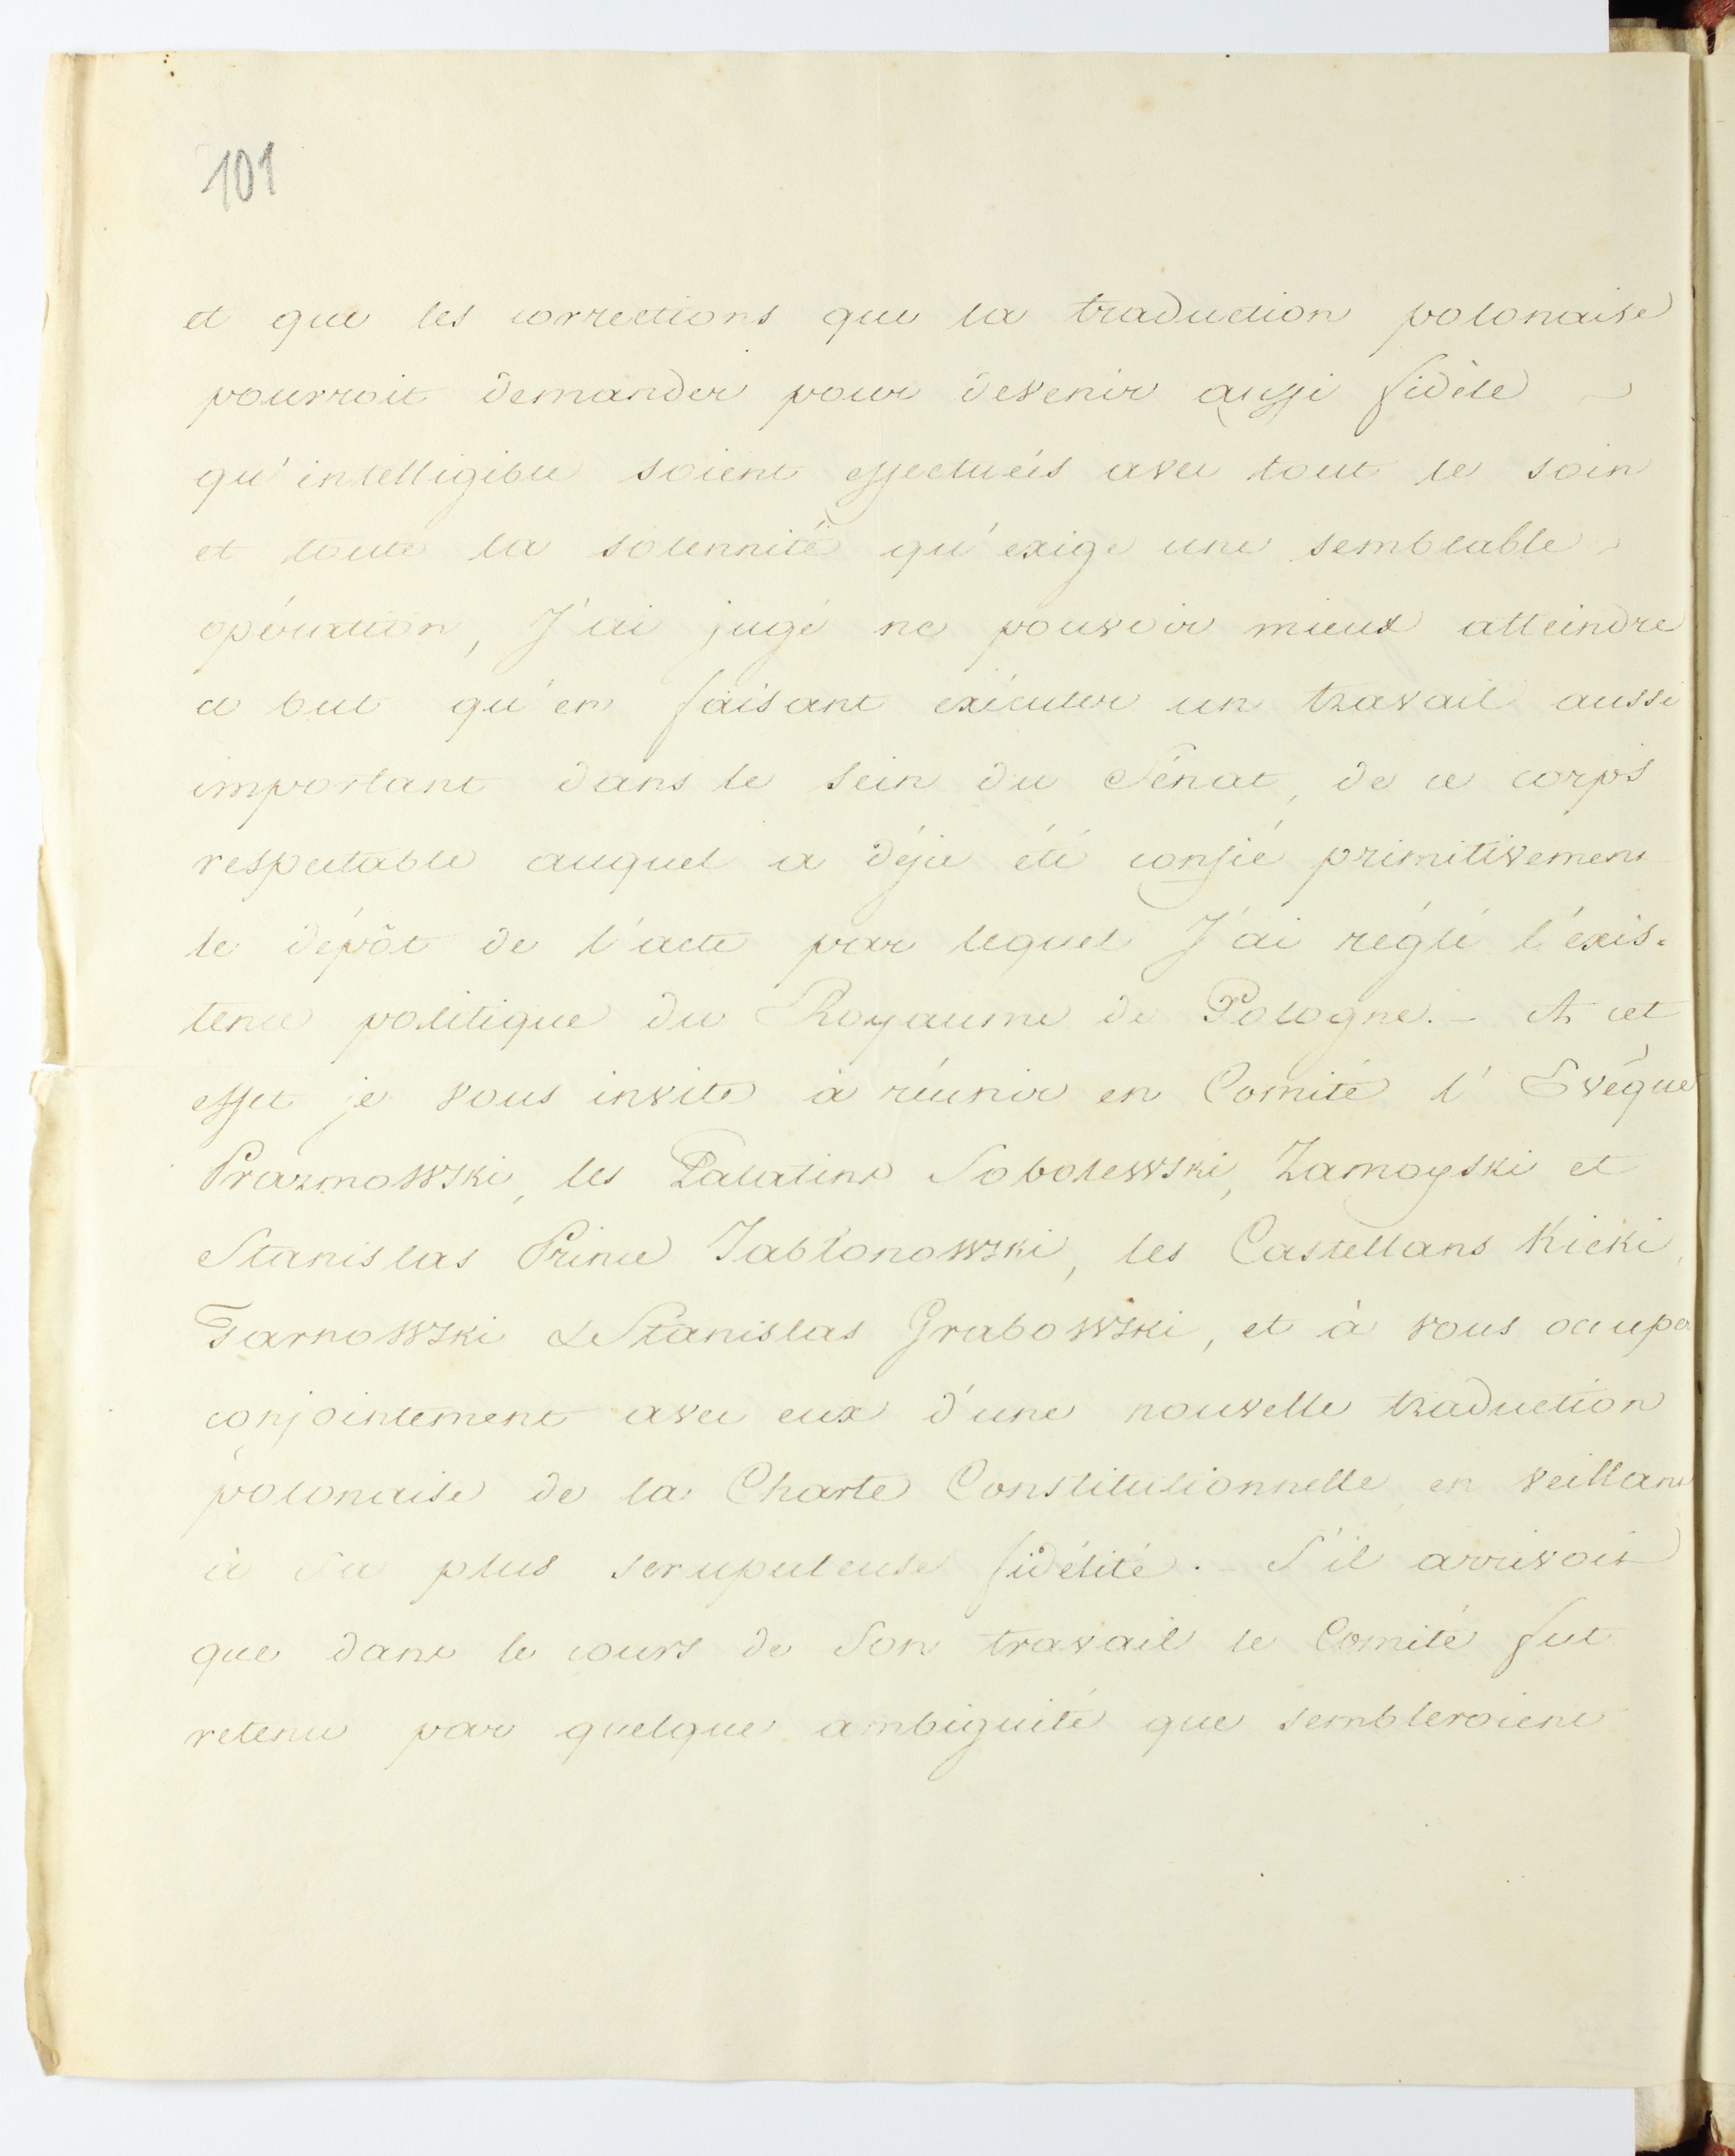 101
et que les corrections que la traduction polonaise
pourroit demander pour devenir aussi fidèle
qu'intelligible soient effectuées avec tout le soin
et toute la solennité qu'exige une semblable
opération, J'ai jugé ne pouvoir mieux atteindre
ce but qu'en faisant exécuter un travail aussi
important dans le sein du Sénat, de ce corps
respectable auquel a déja été confié primitivement
le dépôt de l'acte par lequel J'ai réglé l'éxis=
tence politique du Royaume de Pologne. - A cet
effet je vous invite à réunir en Comité l'Evêque
Prazmowski, les Palatins Sobolewski, Zamoyski et
Stanislas Prince Jabłonowski, les Castellans Kicki,
Tarnowski & Stanislas Grabowski, et à vous occuper
conjointement avec eux d'une nouvelle traduction
polonaise de la Charte Constitutionnelle en veillant
à sa plus scrupuleuse fidélité. - S'il arrivoit
que dans le cours de Son travail le Comité fut
retenu par quelque ambiguité que sembleroient